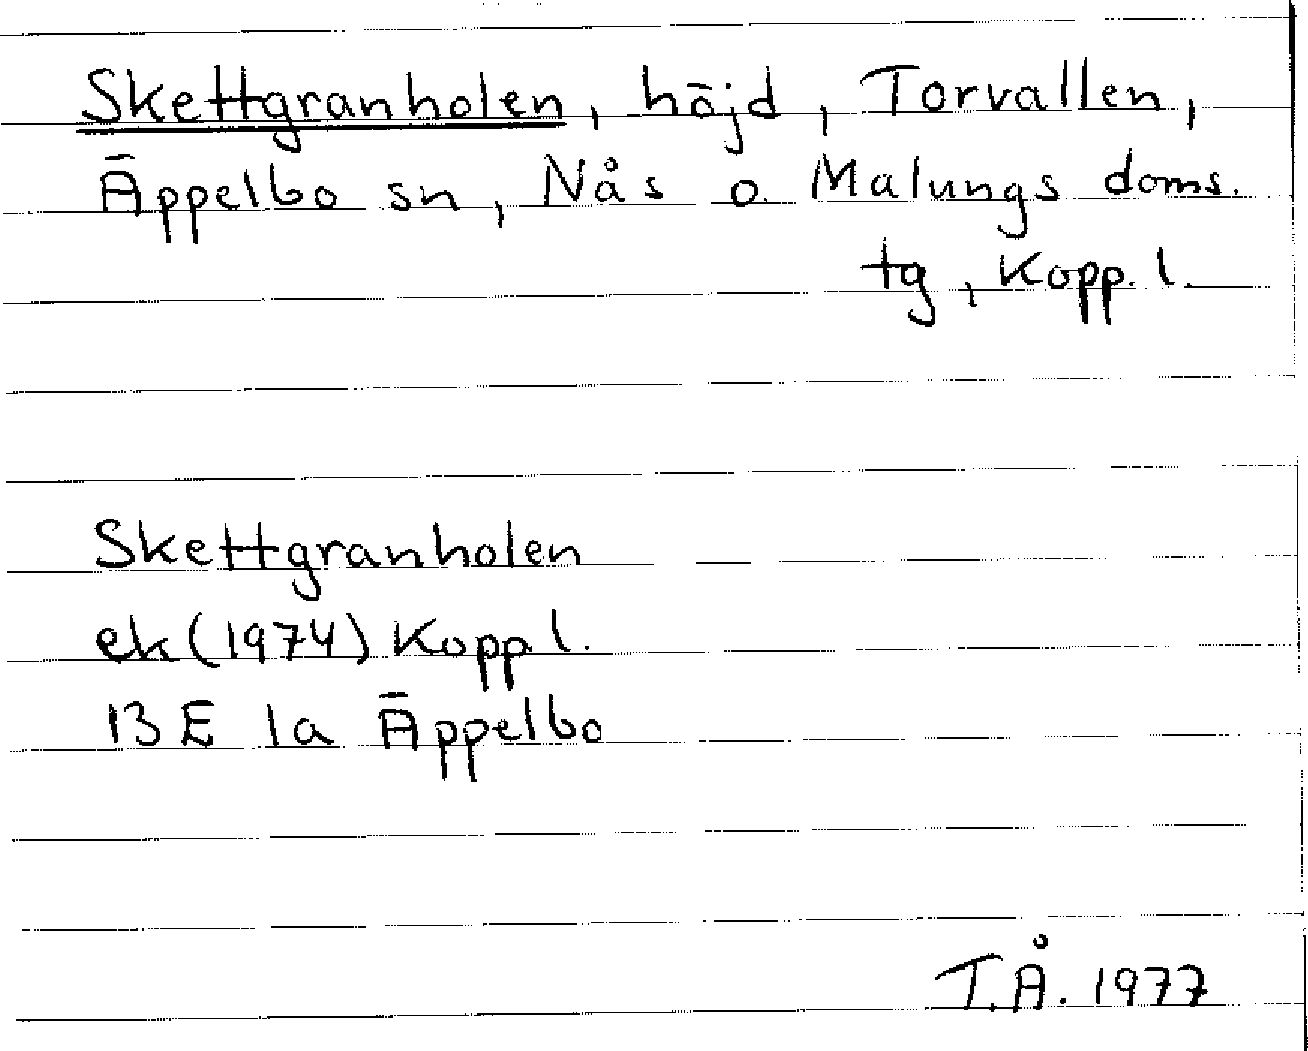 Skettgranholen, höjd, Torvallen,
Äppelbo sn, Nås o. Malungs doms.
tg, Kopp. l.
Skettgranholen
ek (1974) Kopp l.
13 E 1a Äppelbo
T.Å. 1977